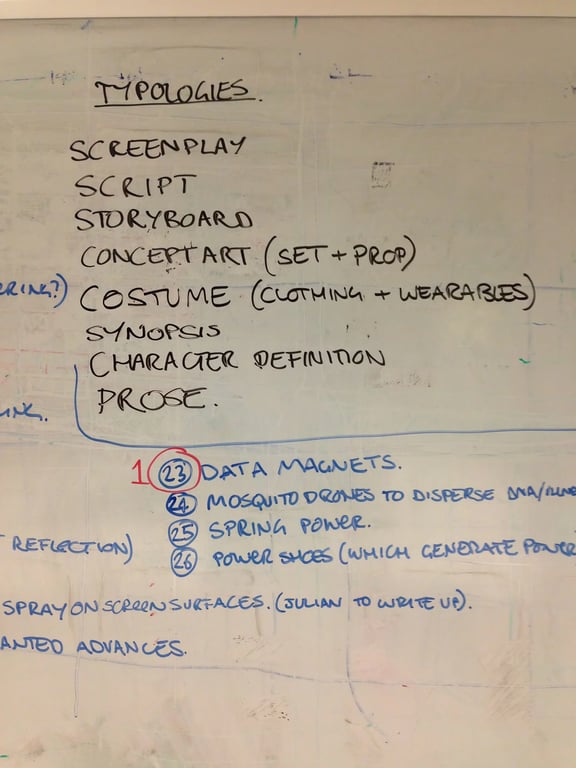 TYPOLOGIES.
SCREENPLAY
SCRIPT
STORYBOARD
CONCEPT ART (SET + PROP)
COSTUME (CLOTHING + WEARABLES)
SYNOPSIS
CHARACTER DEFINITION
PROSE.
1 23 DATA MAGNETS.
24 MOSQUITO DRONES TO DISPERSE DNA/
25 SPRING POWER.
REFLECTION)
26 POWER SHOES (WHICH GENERATE POWER
SPRAY ON SCREEN SURFACES. (JULIAN TO WRITE UP).
ADVANCES.